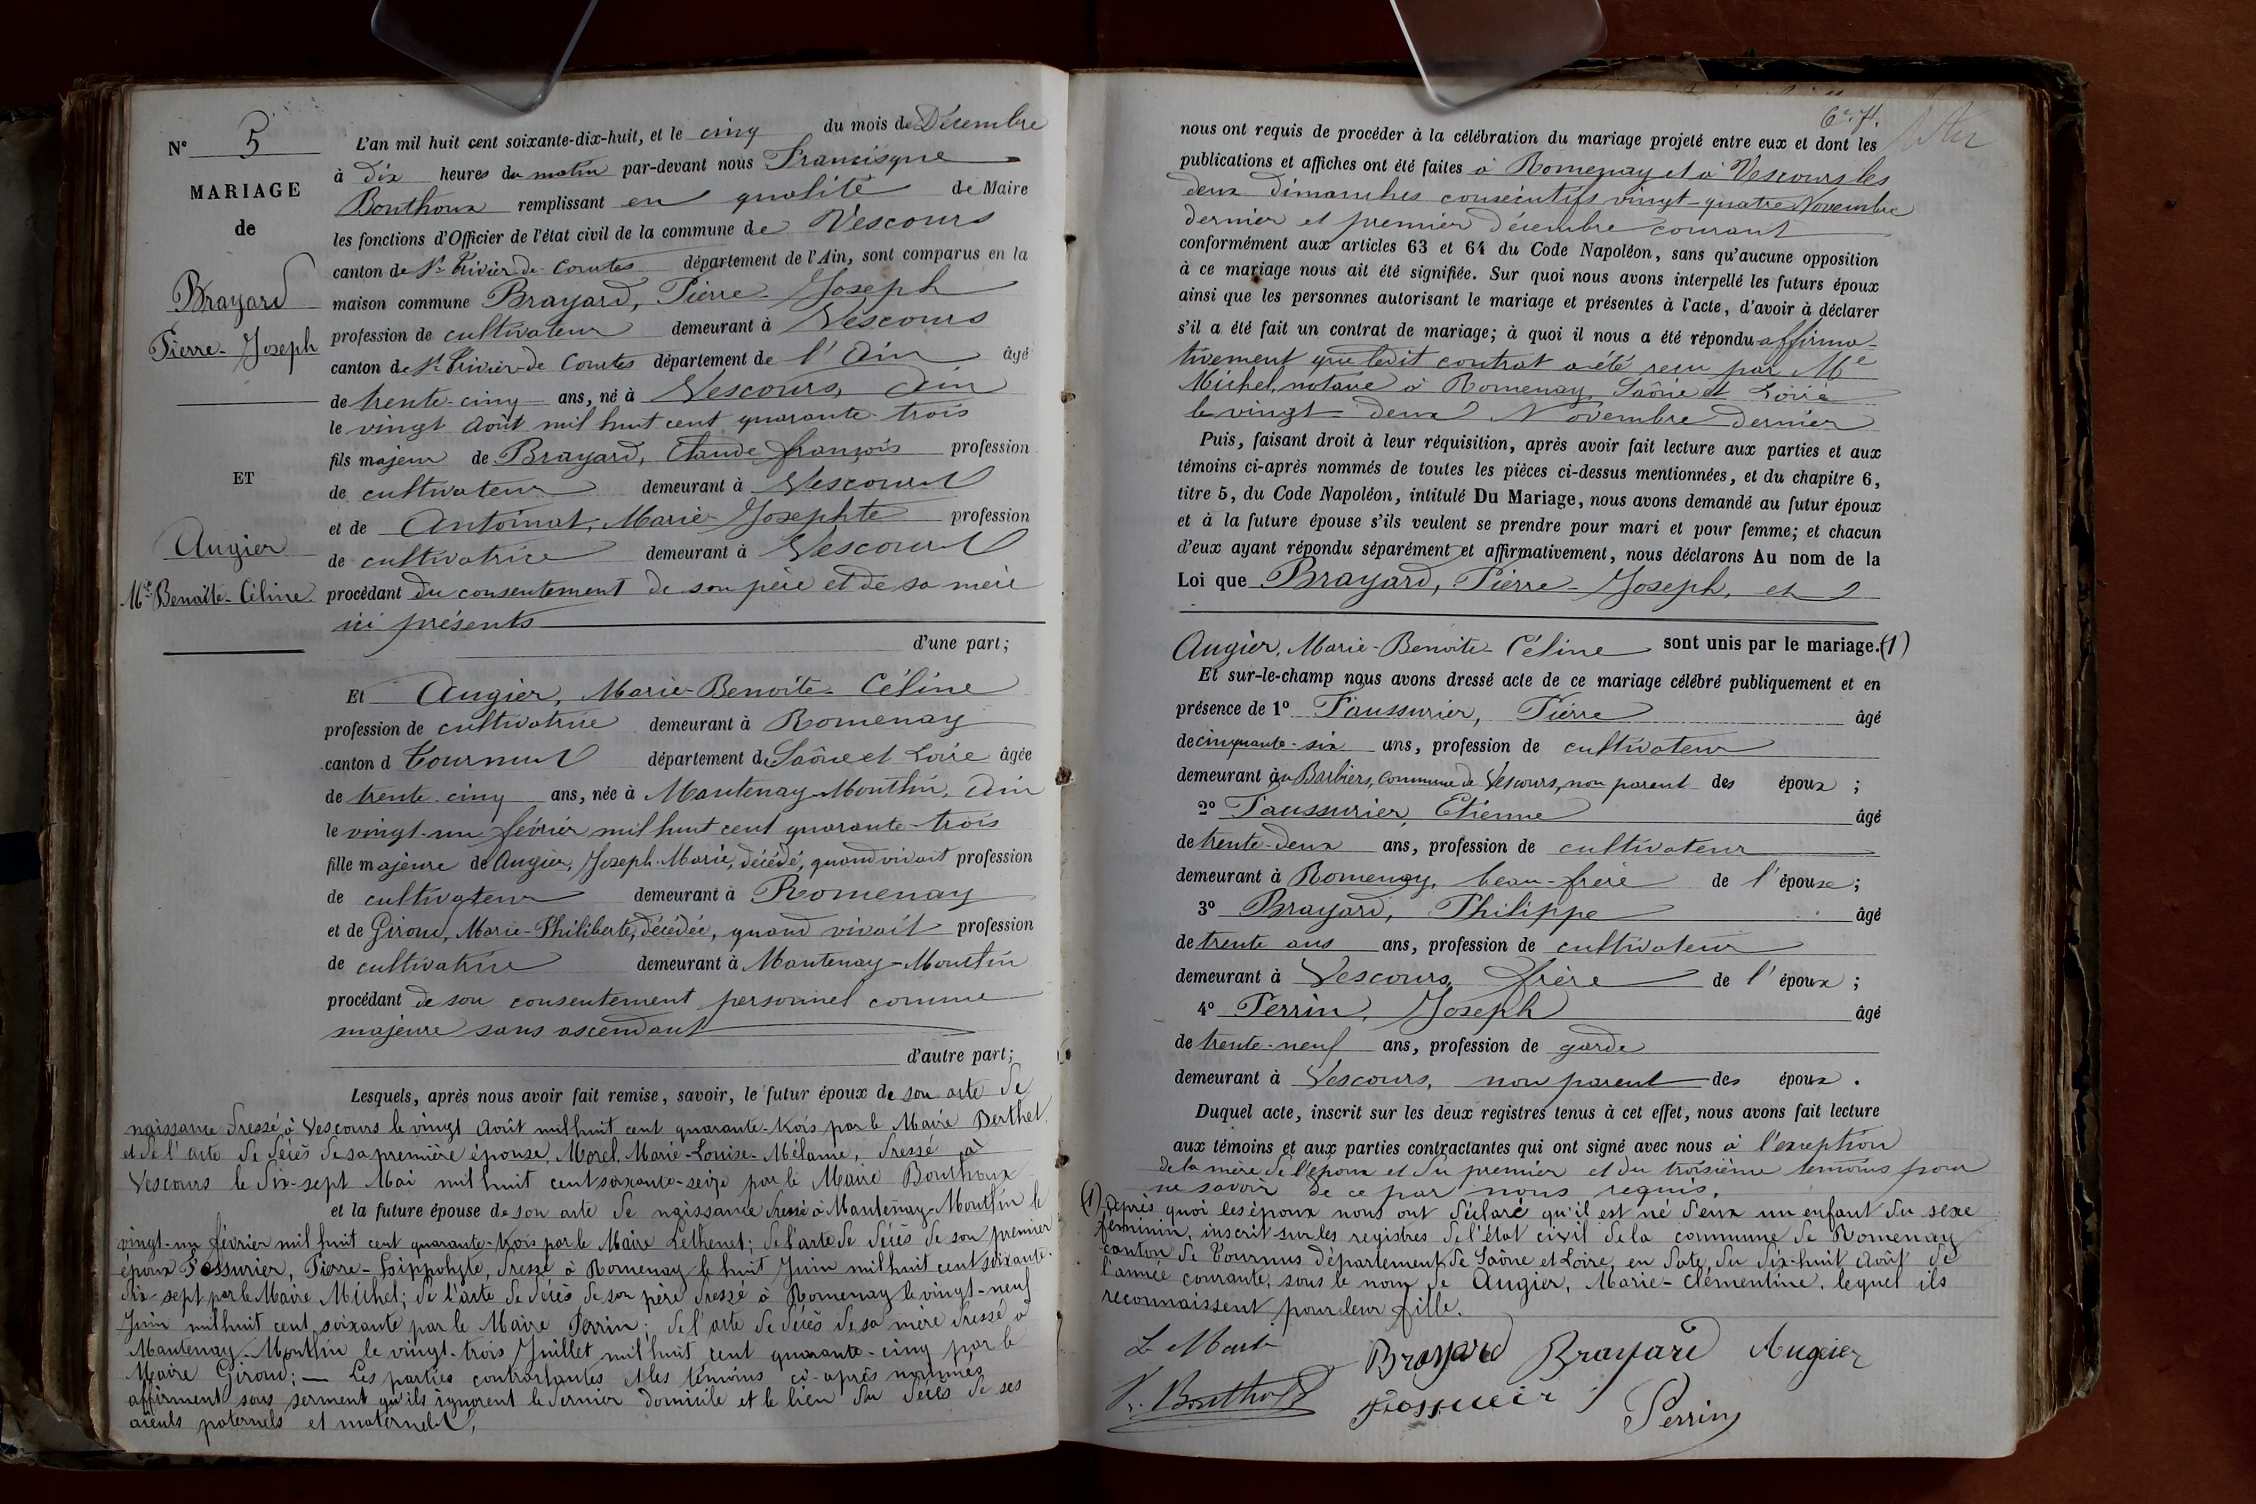 N° 5
MARIAGE
de
Brayard
Pierre-Joseph
ET
Augier
Mie Benoîte-Céline
L'an mil huit cent soixante-dix-huit, et le cinq du mois de Décembre
à dix heures du matin par-devant nous Francisque
Bouthoux remplissant en qualité de Maire
les fonctions d'Officier de l'état civil de la commune de Vescours
canton de St Trivier-de-Courtes département de l'Ain, sont comparus en la
maison commune Brayard, Pierre-Joseph
profession de cultivateur demeurant à Vescours
canton de St Trivier-de Courtes département de l'Ain âgé
de trente-cinq ans, né à Vescours, Ain
le vingt Août mil huit cent quarante-trois
fils majeur de Brayard, Claude françois profession
de cultivateur demeurant à Vescours
et de Antoinat, Marie-Josephte profession
de cultivatrice demeurant à Vescours
procédant du consentement de son père et de sa mère
ici présents
d'une part;
Et Augier, Marie-Benoîte-Céline
profession de cultivatrice demeurant à Romenay
canton d Tournus département de Saône et Loire âgée
de trente-cinq ans, née à Mantenay-Montlin, Ain
le vingt-un février mil huit cent quarante-trois
fille majeure de Augier, Joseph-Marie, décédé, quand vivait profession
de cultivateur demeurant à Romenay
et de Giroud, Marie-Philiberte, décédée, quand vivait profession
de cultivatrice demeurant à Mantenay-Montlin
procédant de son consentement personnel comme
majeure sans ascendant
d'autre part;
Lesquels, après nous avoir fait remise, savoir, le futur époux de son acte de
naissance dressé à Vescours le vingt Août mil huit cent quarante-trois par le Maire Berthet,
et de l'acte de décès de sa première épouse, Morel, Marie-Louise-Mélanie, dressé à
Vescours le dix-sept Mai mil huit cent soixante-seize par le Maire Bouthoux
et la future épouse de son acte de naissance dressé à Mantenay-Montlin le
vingt-un février mil huit cent quarante-trois par le Maire Lethenet; de l'acte de décès de son premier
époux Fossurier, Pierre-Hippolyte, dressé à Romenay le huit Juin mil huit cent soixante-
dix-sept par le Maire Michel; de l'acte de décès de son père dressé à Romenay le vingt-neuf
Juin mil huit cent soixante par le Maire Perrin; de l'acte de décès de sa mère dressé à
Mantenay-Montlin le vingt-trois Juillet mil huit cent quarante-cinq par le
Maire Giroud; — Les parties contractantes et les témoins ci-après nommés
affirment sous serment qu'ils ignorent le dernier domicile et le lieu du décès de ses
aïeuls paternels et maternels,
nous ont requis de procéder à la célébration du mariage projeté entre eux et dont les
publications et affiches ont été faites à Romenay et à Vescours les
deux dimanches consécutifs vingt-quatre Novembre
dernier et premier décembre courant
conformément aux articles 63 et 64 du Code Napoléon, sans qu'aucune opposition
à ce mariage nous ait été signifiée. Sur quoi nous avons interpellé les futurs époux
ainsi que les personnes autorisant le mariage et présentes à l'acte, d'avoir à déclarer
s'il a été fait un contrat de mariage; à quoi il nous a été répondu affirma-
tivement que ledit contrat a été reçu par Me
Michel, notaire à Romenay, Saône et Loire
le vingt deux Novembre dernier
Puis, faisant droit à leur réquisition, après avoir fait lecture aux parties et aux
témoins ci-après nommés de toutes les pièces ci-dessus mentionnées, et du chapitre 6,
titre 5, du Code Napoléon, intitulé Du Mariage, nous avons demandé au futur époux
et à la future épouse s'ils veulent se prendre pour mari et pour femme; et chacun
d'eux ayant répondu séparément et affirmativement, nous déclarons Au nom de la
Loi que Brayard, Pierre-Joseph, et
Augier, Marie-Benoîte-Céline sont unis par le mariage. (1)
Et sur-le-champ nous avons dressé acte de ce mariage célébré publiquement et en
présence de 1° Faussurier, Pierre âgé
de cinquante-six ans, profession de cultivateur
demeurant au Barbiers, commune de Vescours, non parent des époux ;
2° Faussurier, Etienne âgé
de trente-deux ans, profession de cultivateur
demeurant à Romenay, beau-frère de l'épouse;
3° Brayard, Philippe âgé
de trente ans ans, profession de cultivateur
demeurant à Vescours, frère de l'époux ;
4° Perrin, Joseph âgé
de trente-neuf ans, profession de garde
demeurant à Vescours, non parent des époux.
Duquel acte, inscrit sur les deux registres tenus à cet effet, nous avons fait lecture
aux témoins et aux parties contractantes qui ont signé avec nous à l'exception
de la mère de l'époux et du premier et du troisième témoins pour
ne savoir de ce par nous requis.
(1) Après quoi les époux nous ont déclaré qu'il est né d'eux un enfant du sexe
féminin, inscrit sur les registres de l'état civil de la commune de Romenay
canton de Tournus département de Saône et Loire, en date du dix-huit Août de
l'année courante, sous le nom de Augier, Marie-Clémentine, lequel ils
reconnaissent pour leur fille.
Le Maire
Brayard Brayard Augier
Fr. Bouthoux
Perrin